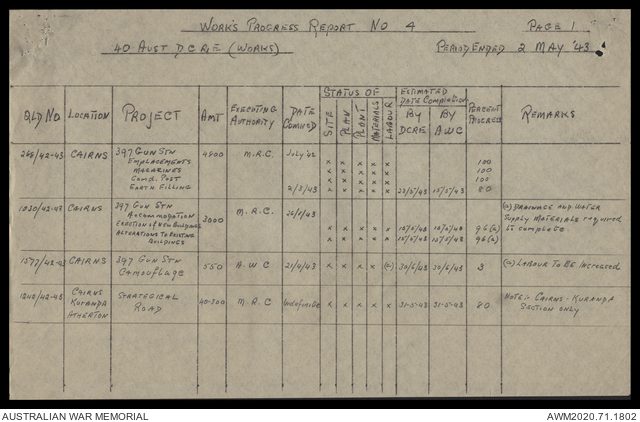 WORK'S PROGRESS REPORT NO 4 PAGE 1
40 AUST DCRE (WORKS) PERIOD ENDED 2 MAY '43
STATUS OF ESTIMATED DATE COMPLETION
QLD NO LOCATION PROJECT AMT EXECUTING AUTHORITY DATE COM'NCD SITE PLAN PLANT MATERIALS LABOUR BY DCRE BY AWC PERCENT PROGRESS REMARKS
268/42-43 CAIRNS 397 GUN STN 4800 M.R.C. JULY '42
EMPLACEMENTS x x x x x 100
MAGAZINES x x x x x 100
COMD. POST x x x x x 100
EARTH FILLING 2/3/43 x x x x x 23/5/43 15/5/43 80
1020/42-43 CAIRNS 397 GUN STN M.R.C. (a) DRAINAGE AND WATER
ACCOMMODATION 3000 SUPPLY MATERIALS required
ERECTION OF NEW BUILDINGS x x x x x 15/5/43 15/5/43 96(a) to complete
ALTERATIONS TO EXISTING BUILDINGS x x x x x 15/5/43 15/5/43 96(a)
1577/42-43 CAIRNS 397 GUN STN
CAMOUFLAGE 550 A.W.C 21/4/43 x x x x (a) 30/6/43 30/6/43 3 (a) LABOUR TO BE INCREASED
1240/42-43 CAIRNS STRATEGICAL NOTE:- CAIRNS - KURANDA
KURANDA ROAD 40.300 M.R.C Indefinite x x x x x 31-5-43 31-5-43 80 SECTION ONLY
ATHERTON
AUSTRALIAN WAR MEMORIAL AWM2020.71.1802